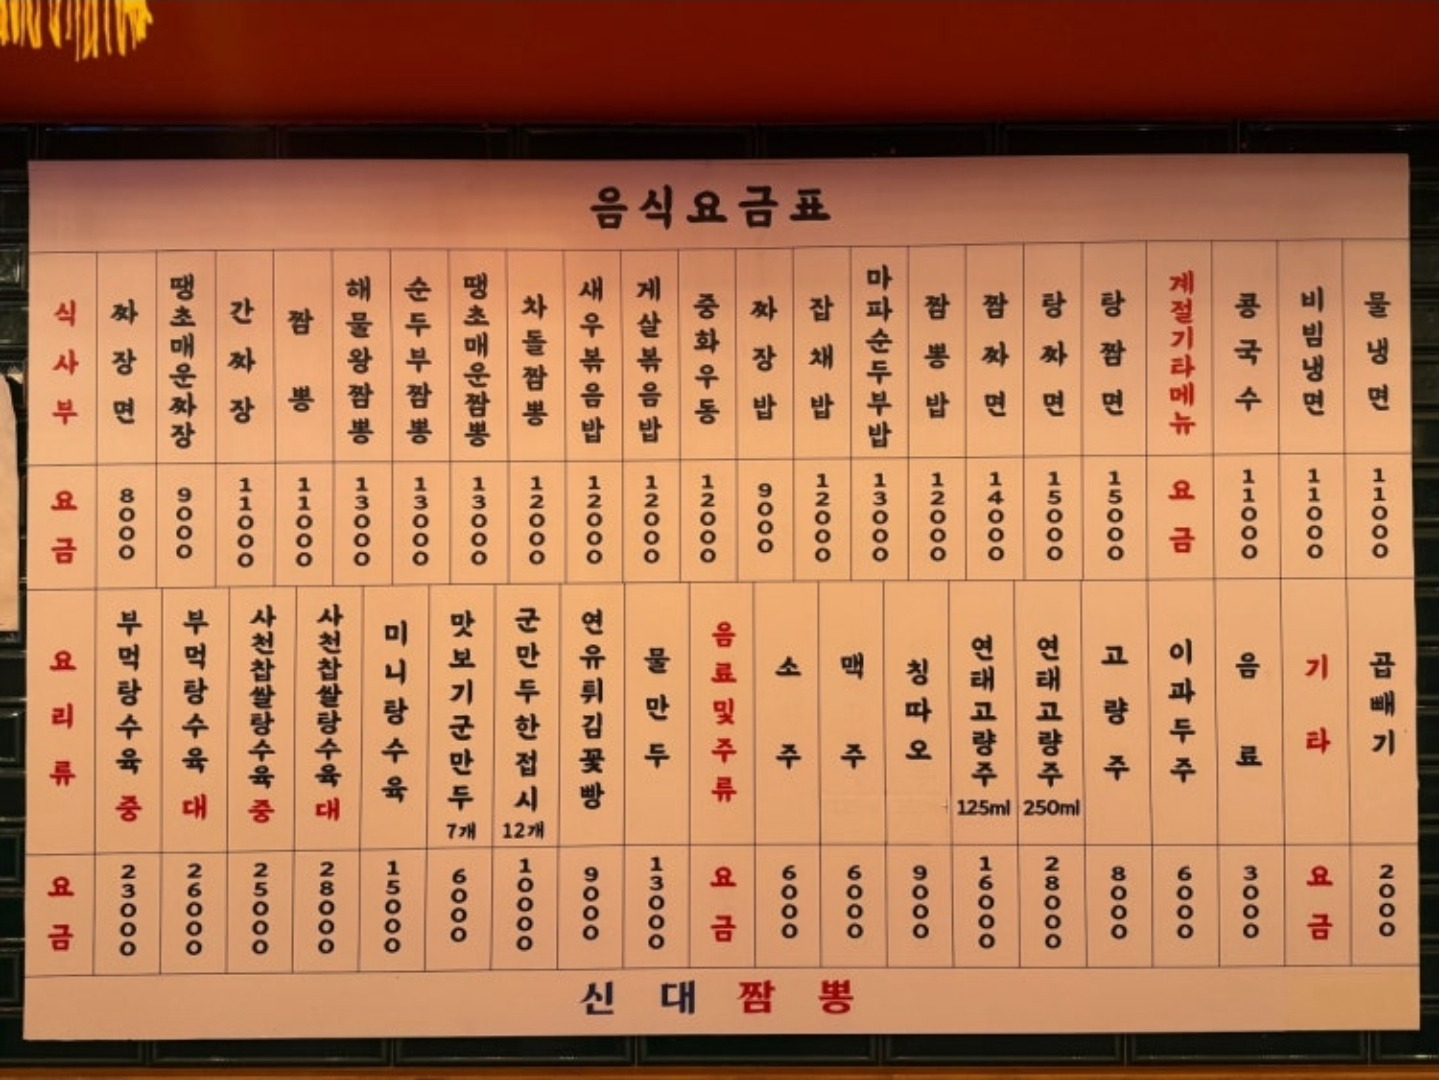 음식요금표
식사부
짜장면
땡초매운짜장
간짜장
짬뽕
해물왕짬뽕
순두부짬뽕
땡초매운짬뽕
차돌짬뽕
새우볶음밥
게살볶음밥
중화우동
짜장밥
잡채밥
마파순두부밥
짬뽕밥
짬짜면
탕짜면
탕짬면
계절기타메뉴
콩국수
비빔냉면
물냉면
요금
8000
9000
11000
11000
13000
13000
13000
12000
12000
12000
12000
9000
12000
13000
12000
14000
15000
15000
요금
11000
11000
11000
요리류
부먹탕수육 중
부먹탕수육 대
사천찹쌀탕수육 중
사천찹쌀탕수육 대
미니탕수육
맛보기군만두 7개
군만두한접시 12개
연유튀김꽃빵
물만두
음료및주류
소주
맥주
칭따오
연태고량주 125ml
연태고량주 250ml
고량주
이과두주
음료
기타
곱빼기
요금
23000
26000
25000
28000
15000
6000
10000
9000
13000
요금
6000
6000
9000
16000
28000
8000
6000
3000
요금
2000
신대짬뽕